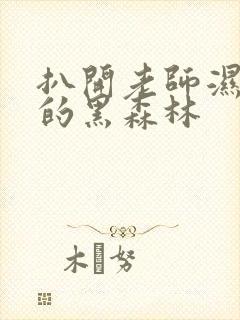 扒開老師濕
的黑森林
木 努